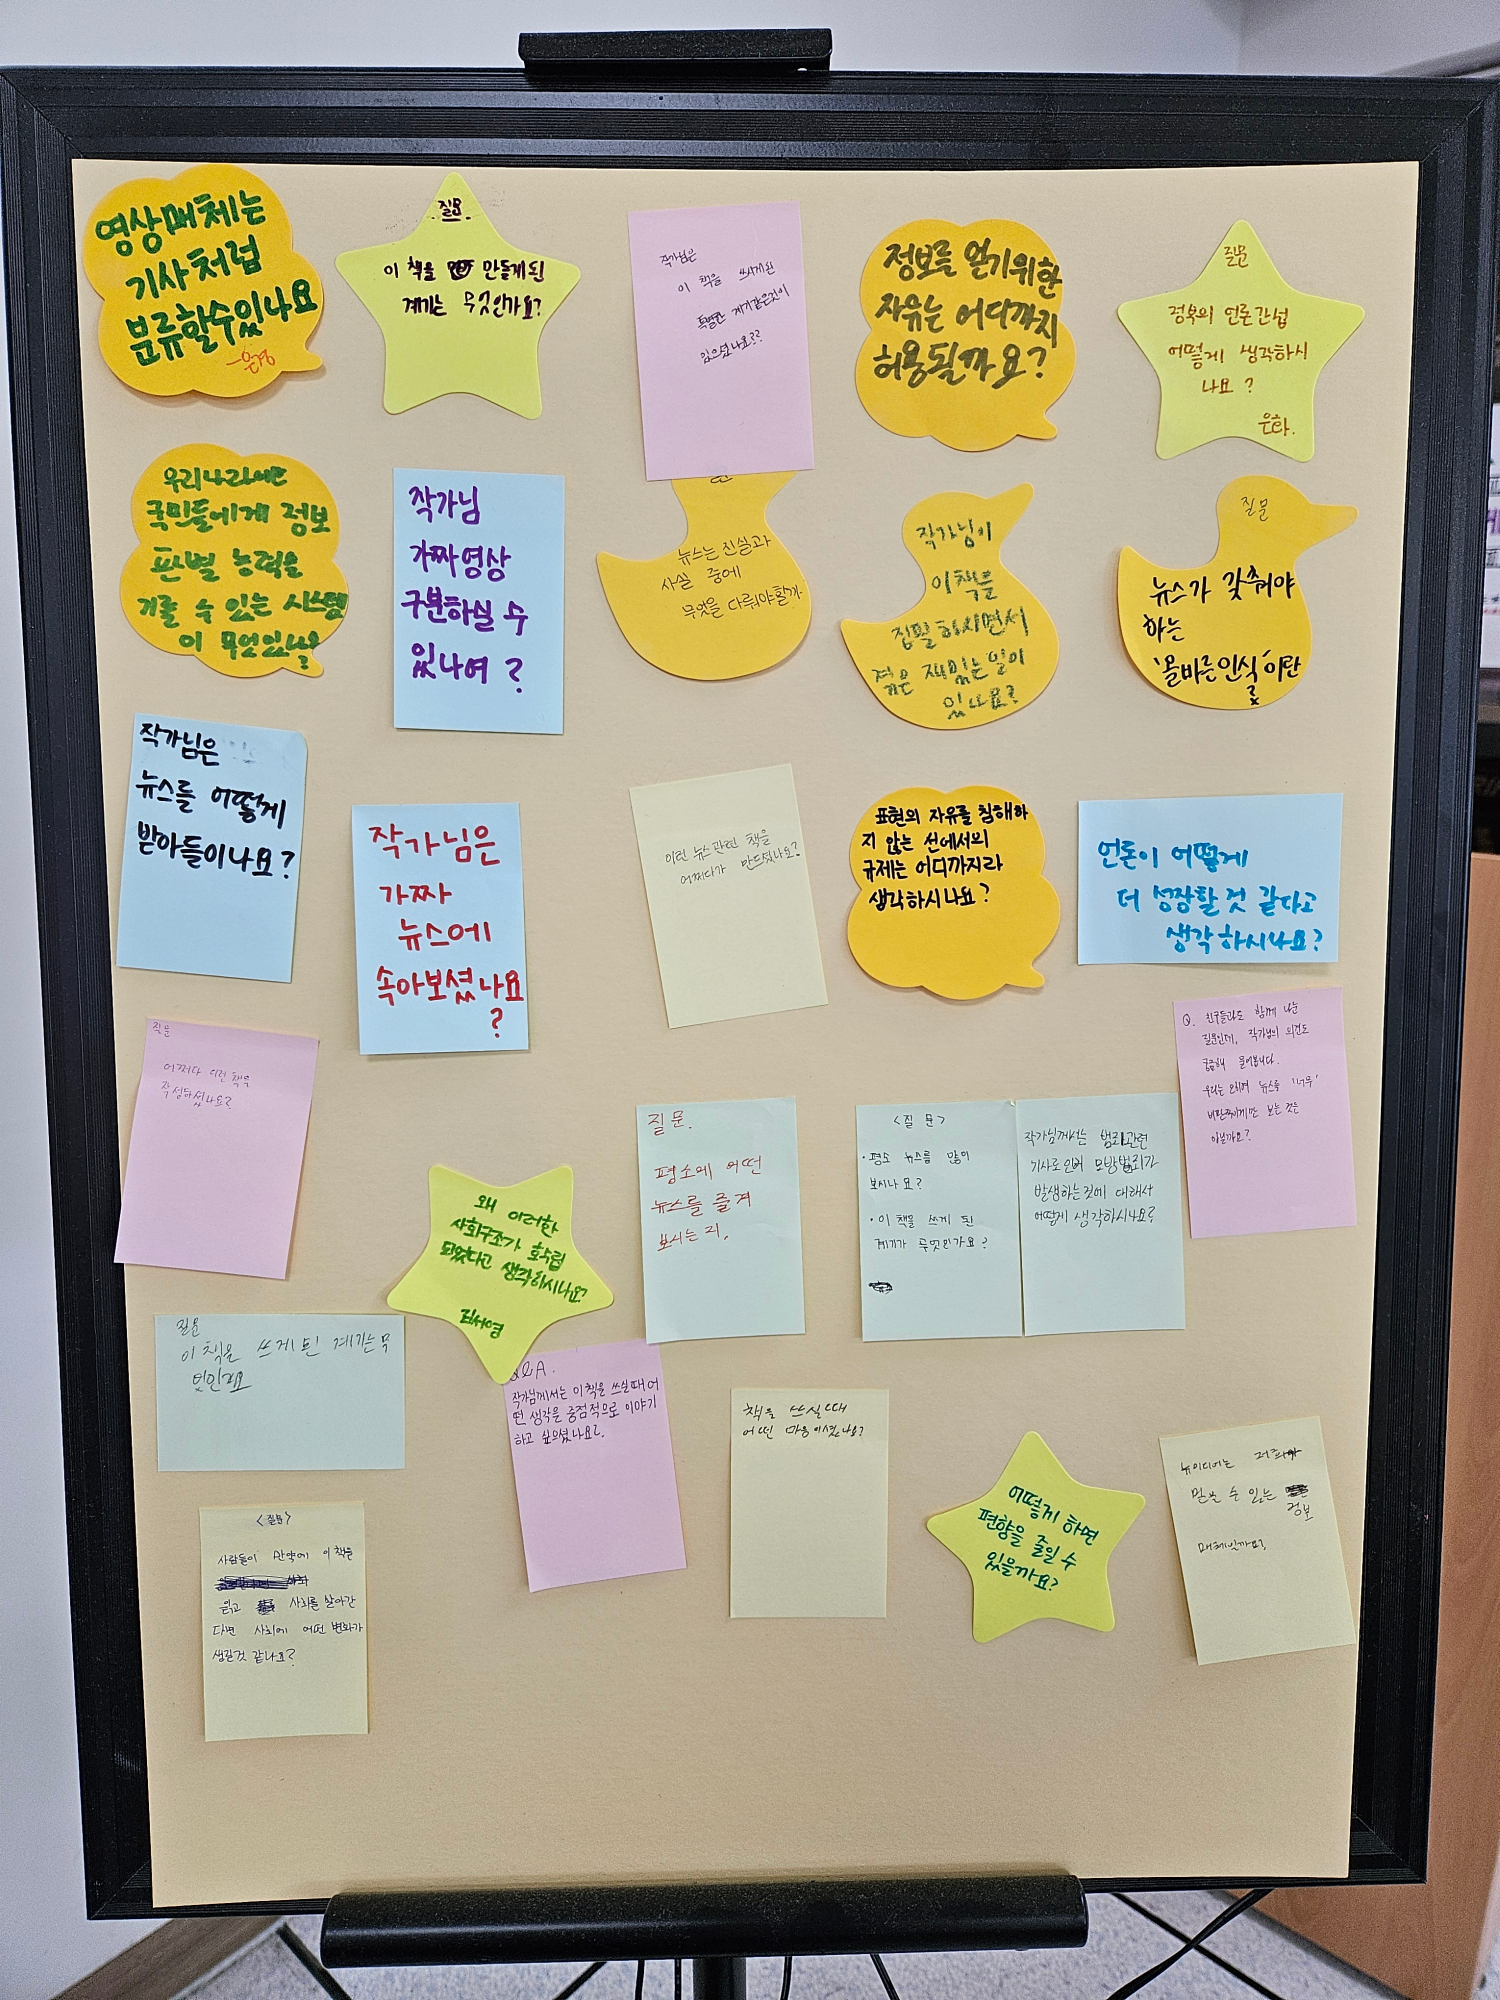 영상매체는
기사처럼
분류할수있나요
-은경
질문.
이 책을 만들게된
계기는 무엇인가요?
작가님은
이 책을 쓰시게된
특별한 계기같은것이
있으셨나요??
정보를 얻기위한
자유는 어디까지
허용될까요?
질문
정부의 언론간섭
어떻게 생각하시
나요?
은하.
우리나라에는
국민들에게 정보
판별 능력을
기를 수 있는 시스템
이 무엇있나요
작가님
가짜영상
구분하실 수
있나여?
뉴스는 진실과
사실 중에
무엇을 다뤄야할까
작가님이
이책을
집필하시면서
겪은 재밌는일이
있나요?
질문
뉴스가 갖춰야
하는
'올바른인식'이란
?
작가님은
뉴스를 어떻게
받아들이나요?
작가님은
가짜
뉴스에
속아보셨나요
?
이런 뉴스관련 책을
어쩌다가 만드셨나요?
표현의 자유를 침해하
지 않는 선에서의
규제는 어디까지라
생각하시나요?
언론이 어떻게
더 성장할것 같다고
생각하시나요?
질문
어쩌다 이런책을
작성하셨나요?
왜 이러한
사회구조가 확립
되었다고 생각하시나요?
질문.
평소에 어떤
뉴스를 즐겨
보시는지.
<질문>
·평소 뉴스를 많이
보시나요?
·이 책을 쓰게 된
계기가 무엇인가요?
작가님께서는 범죄관련
기사로인해 모방범죄가
발생하는것에 대해서
어떻게 생각하시나요?
Q. 친구들과도 함께 나눈
질문인데, 작가님의 의견도
궁금해 물어봅니다.
우리는 왜 뉴스를 '너무'
비판적이게만 보는 것은
아닐까요?
질문
이 책을 쓰게된 계기는무
엇인가요
Q&A.
작가님께서는 이책을 쓰실때어
떤 생각을 중점적으로 이야기
하고 싶으셨나요?
책을 쓰실때
어떤 마음이셨나요?
어떻게 하면
편향을 줄일 수
있을까요?
뉴미디어는
믿을 수 있는
정보
매체일까요?
<질문>
사람들이 만약에 이책을
읽고 사회를 살아간
다면 사회에 어떤 변화가
생길것 같나요?